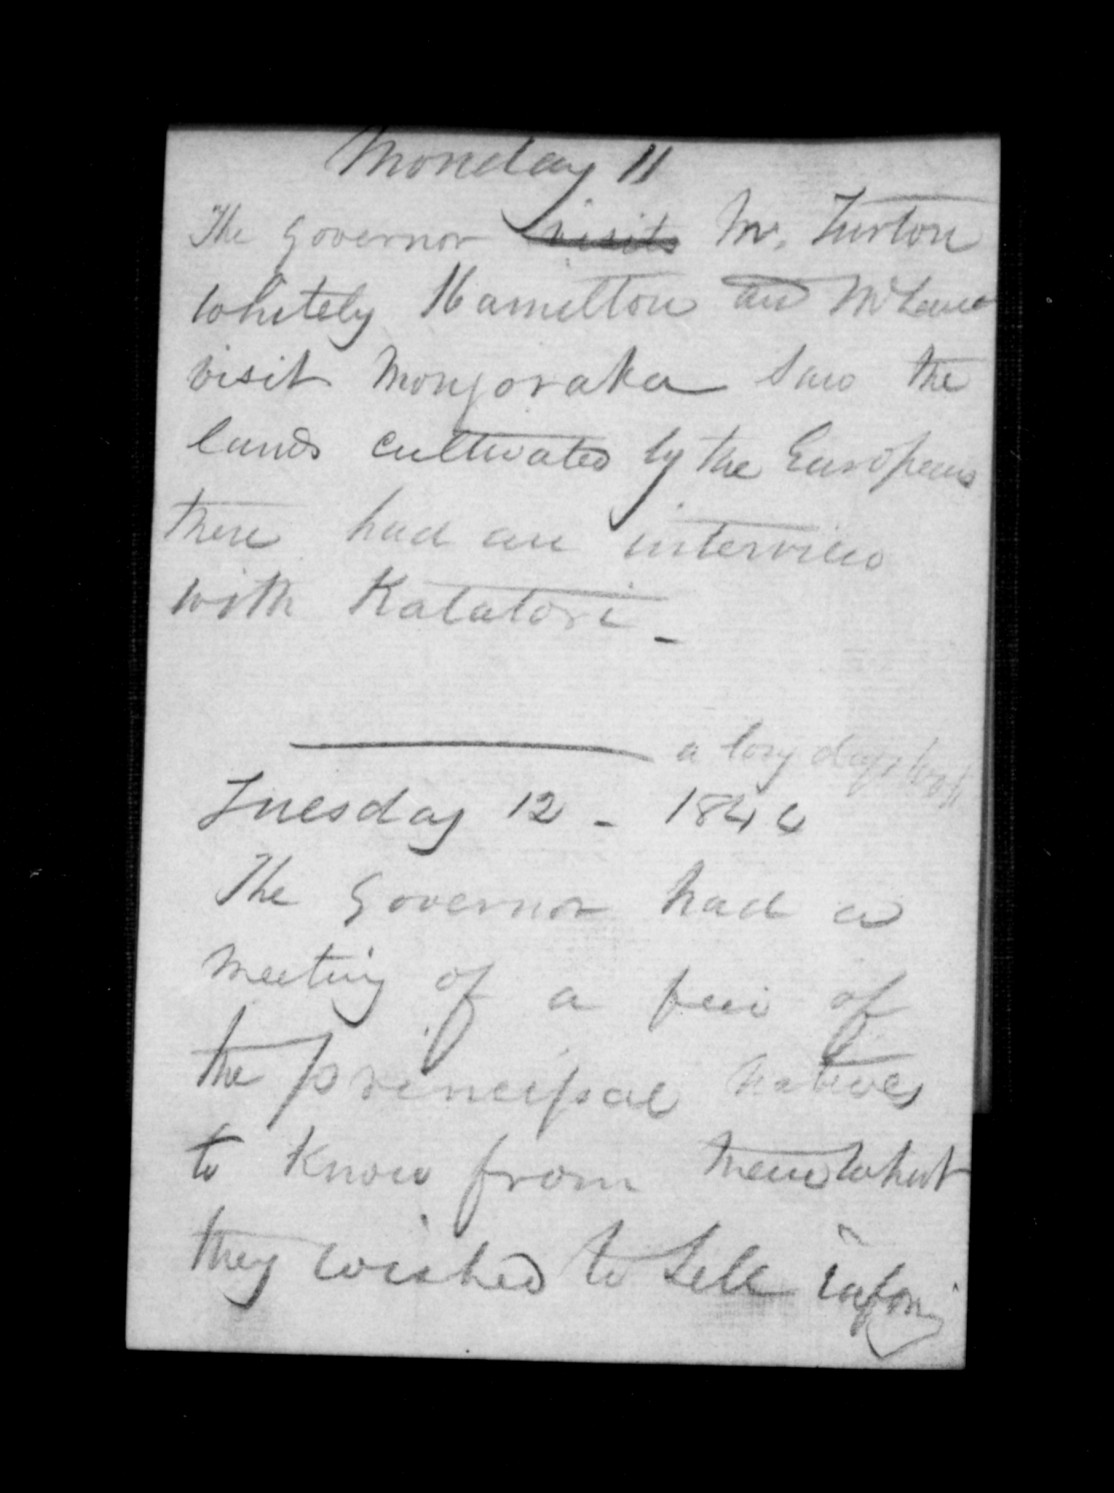 Monday 11
The Governor visits Mr. Turton
Whitely Hamilton and McLean
visit Mongoraka Saw the
lands cultivated by the Europeans
there had an interview
with Katatori _
a long days work
Tuesday 12 - 1844
The Governor had a
Meeting of a few of
the principal natives
to Know from them what
they wished to Sell